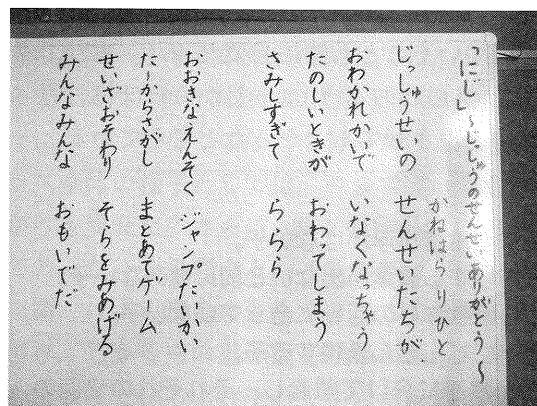 「にじ」～じっしゅうのせんせいありがとう～
かねはら りひと
じっしゅうせいの せんせいたちが
おわかれかいで いなくなっちゃう
たのしいときが おわってしまう
さみしすぎて ららら
おおきなえんそく ジャンプたいかい
たーからさがし まとあてゲーム
せいざおそわり そらをみあげる
みんなみんな おもいでだ